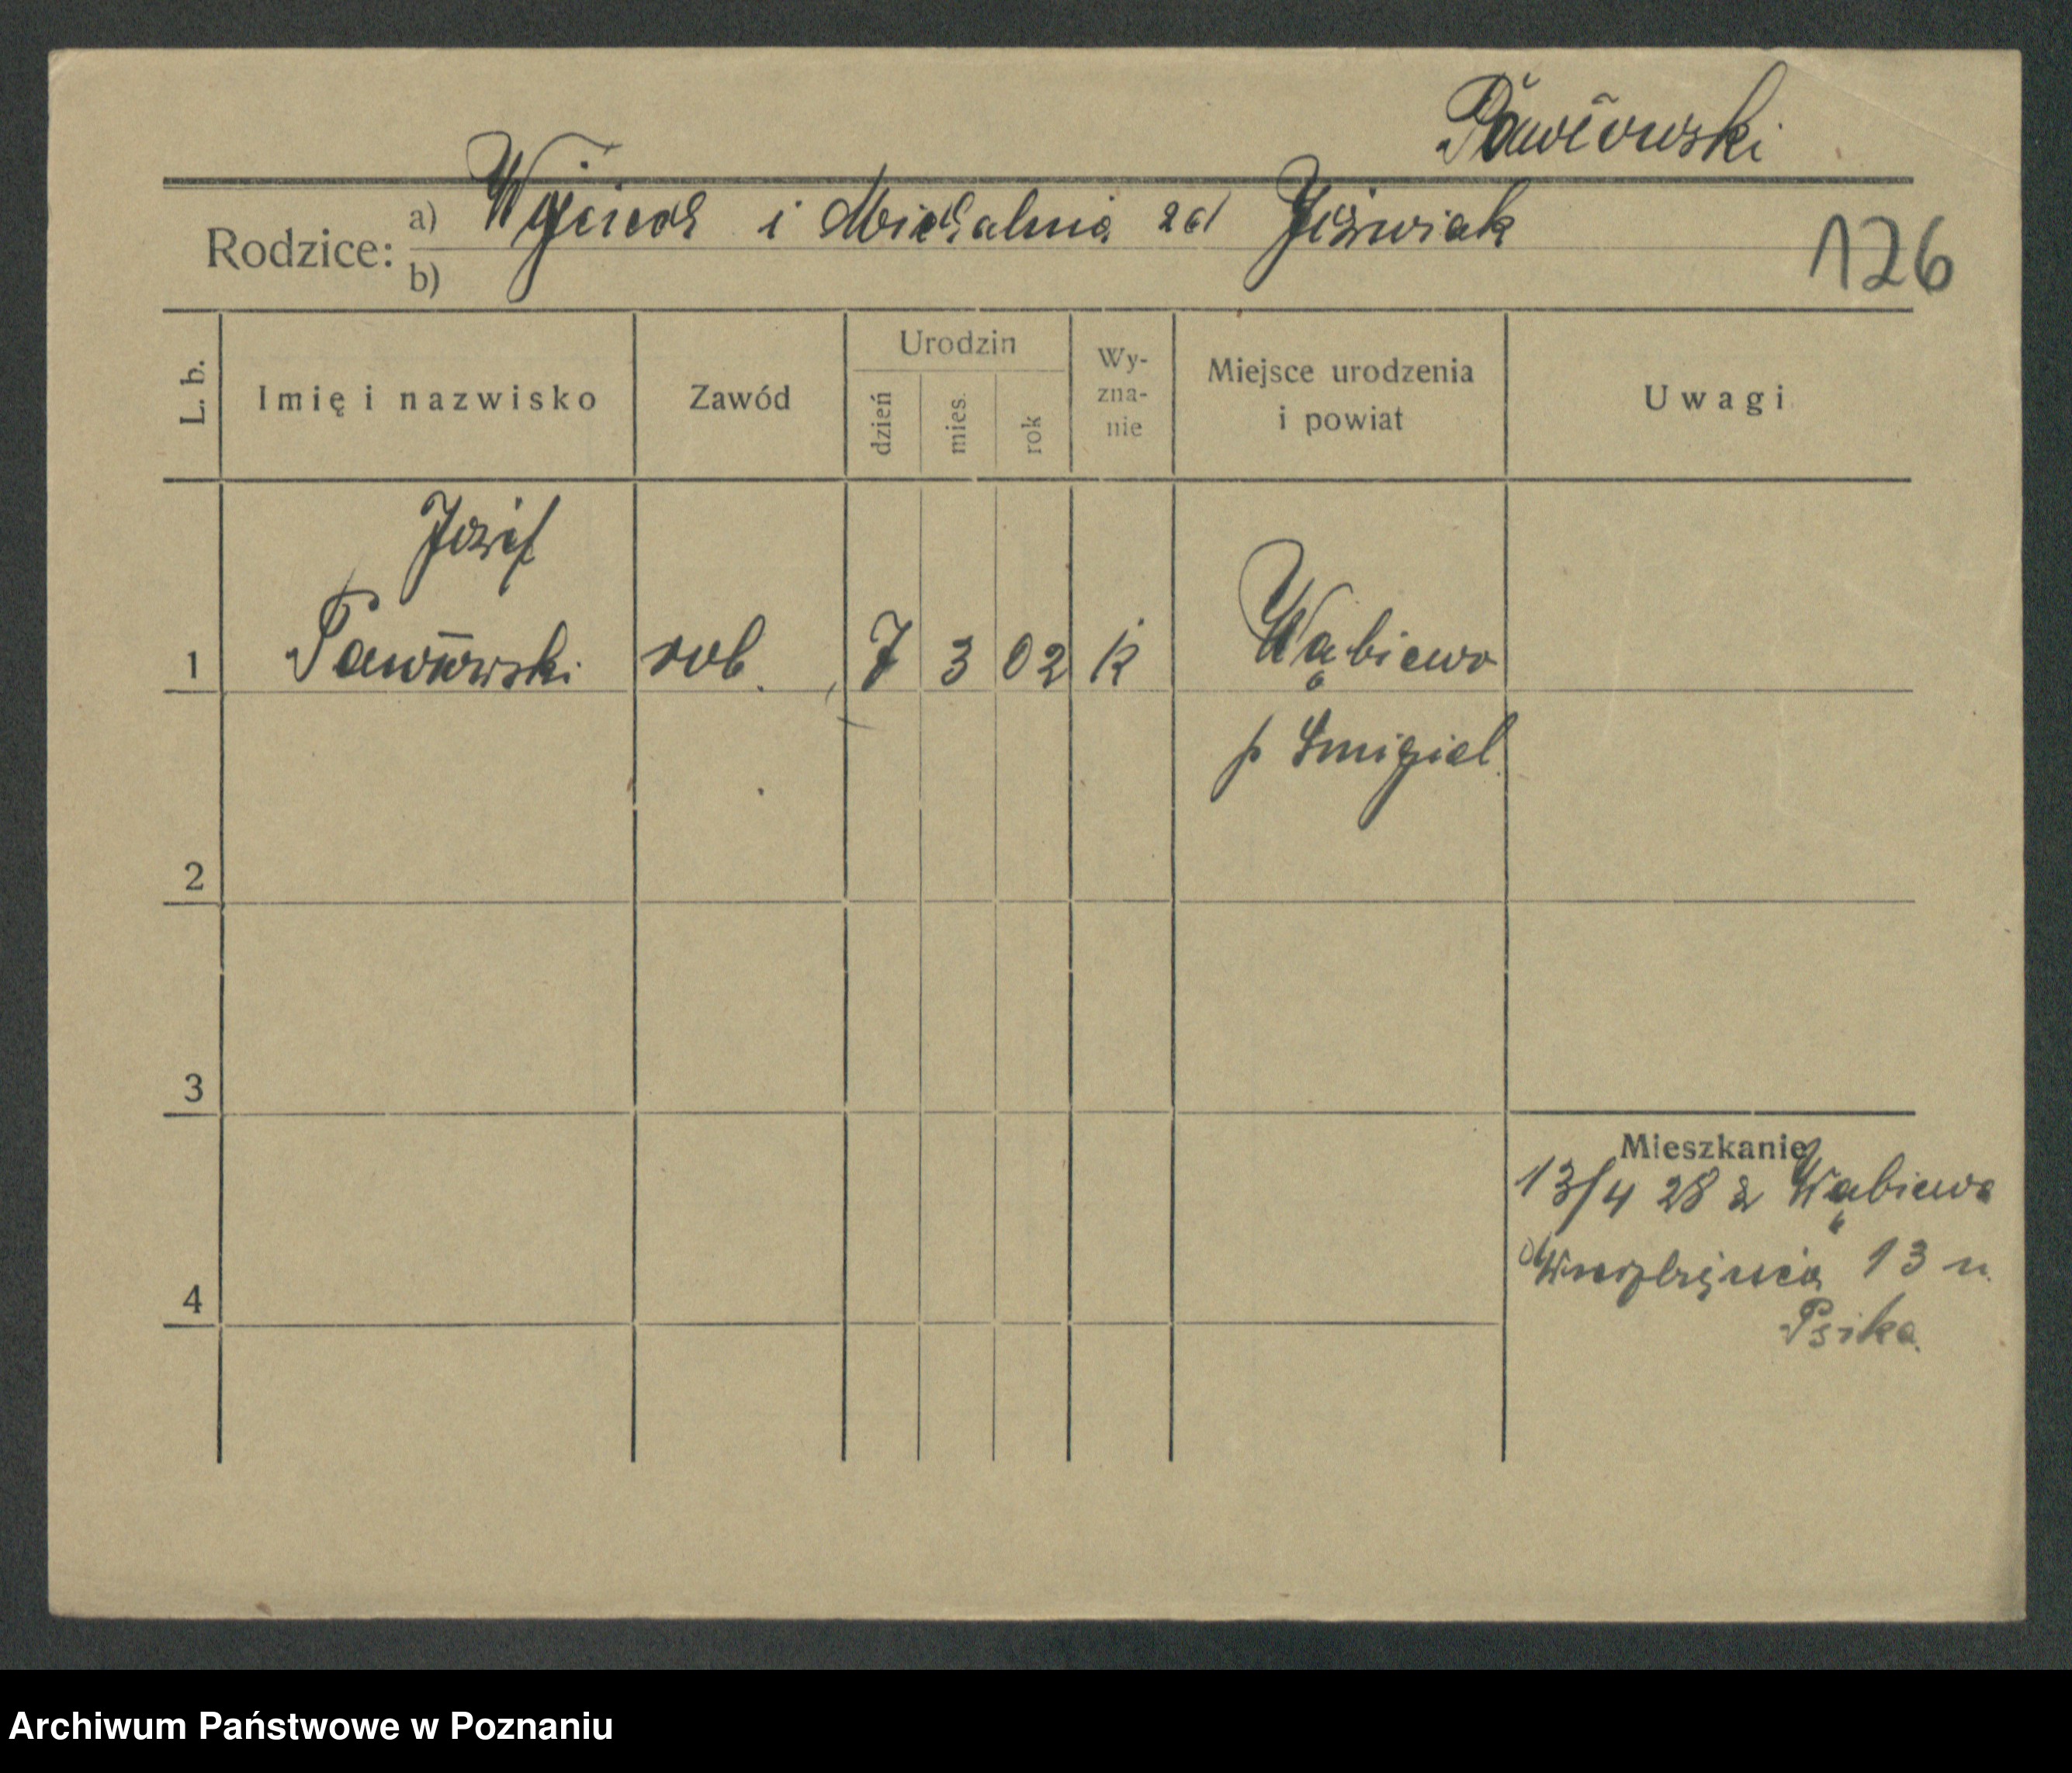 Pawłowski
Rodzice: a) Wojciech i Michalina zd Jóźwiak
b)
126
L. b. Imię i nazwisko Zawód Urodzin dzień mies. rok Wyznanie Miejsce urodzenia i powiat Uwagi
Józef
1 Pawłowski rob. 7 3 02 k Wąbiewo
p Śmigiel.
2
3
Mieszkanie
13/4 28 z Wąbiewo
13 u.
4
Psika.
Archiwum Państwowe w Poznaniu